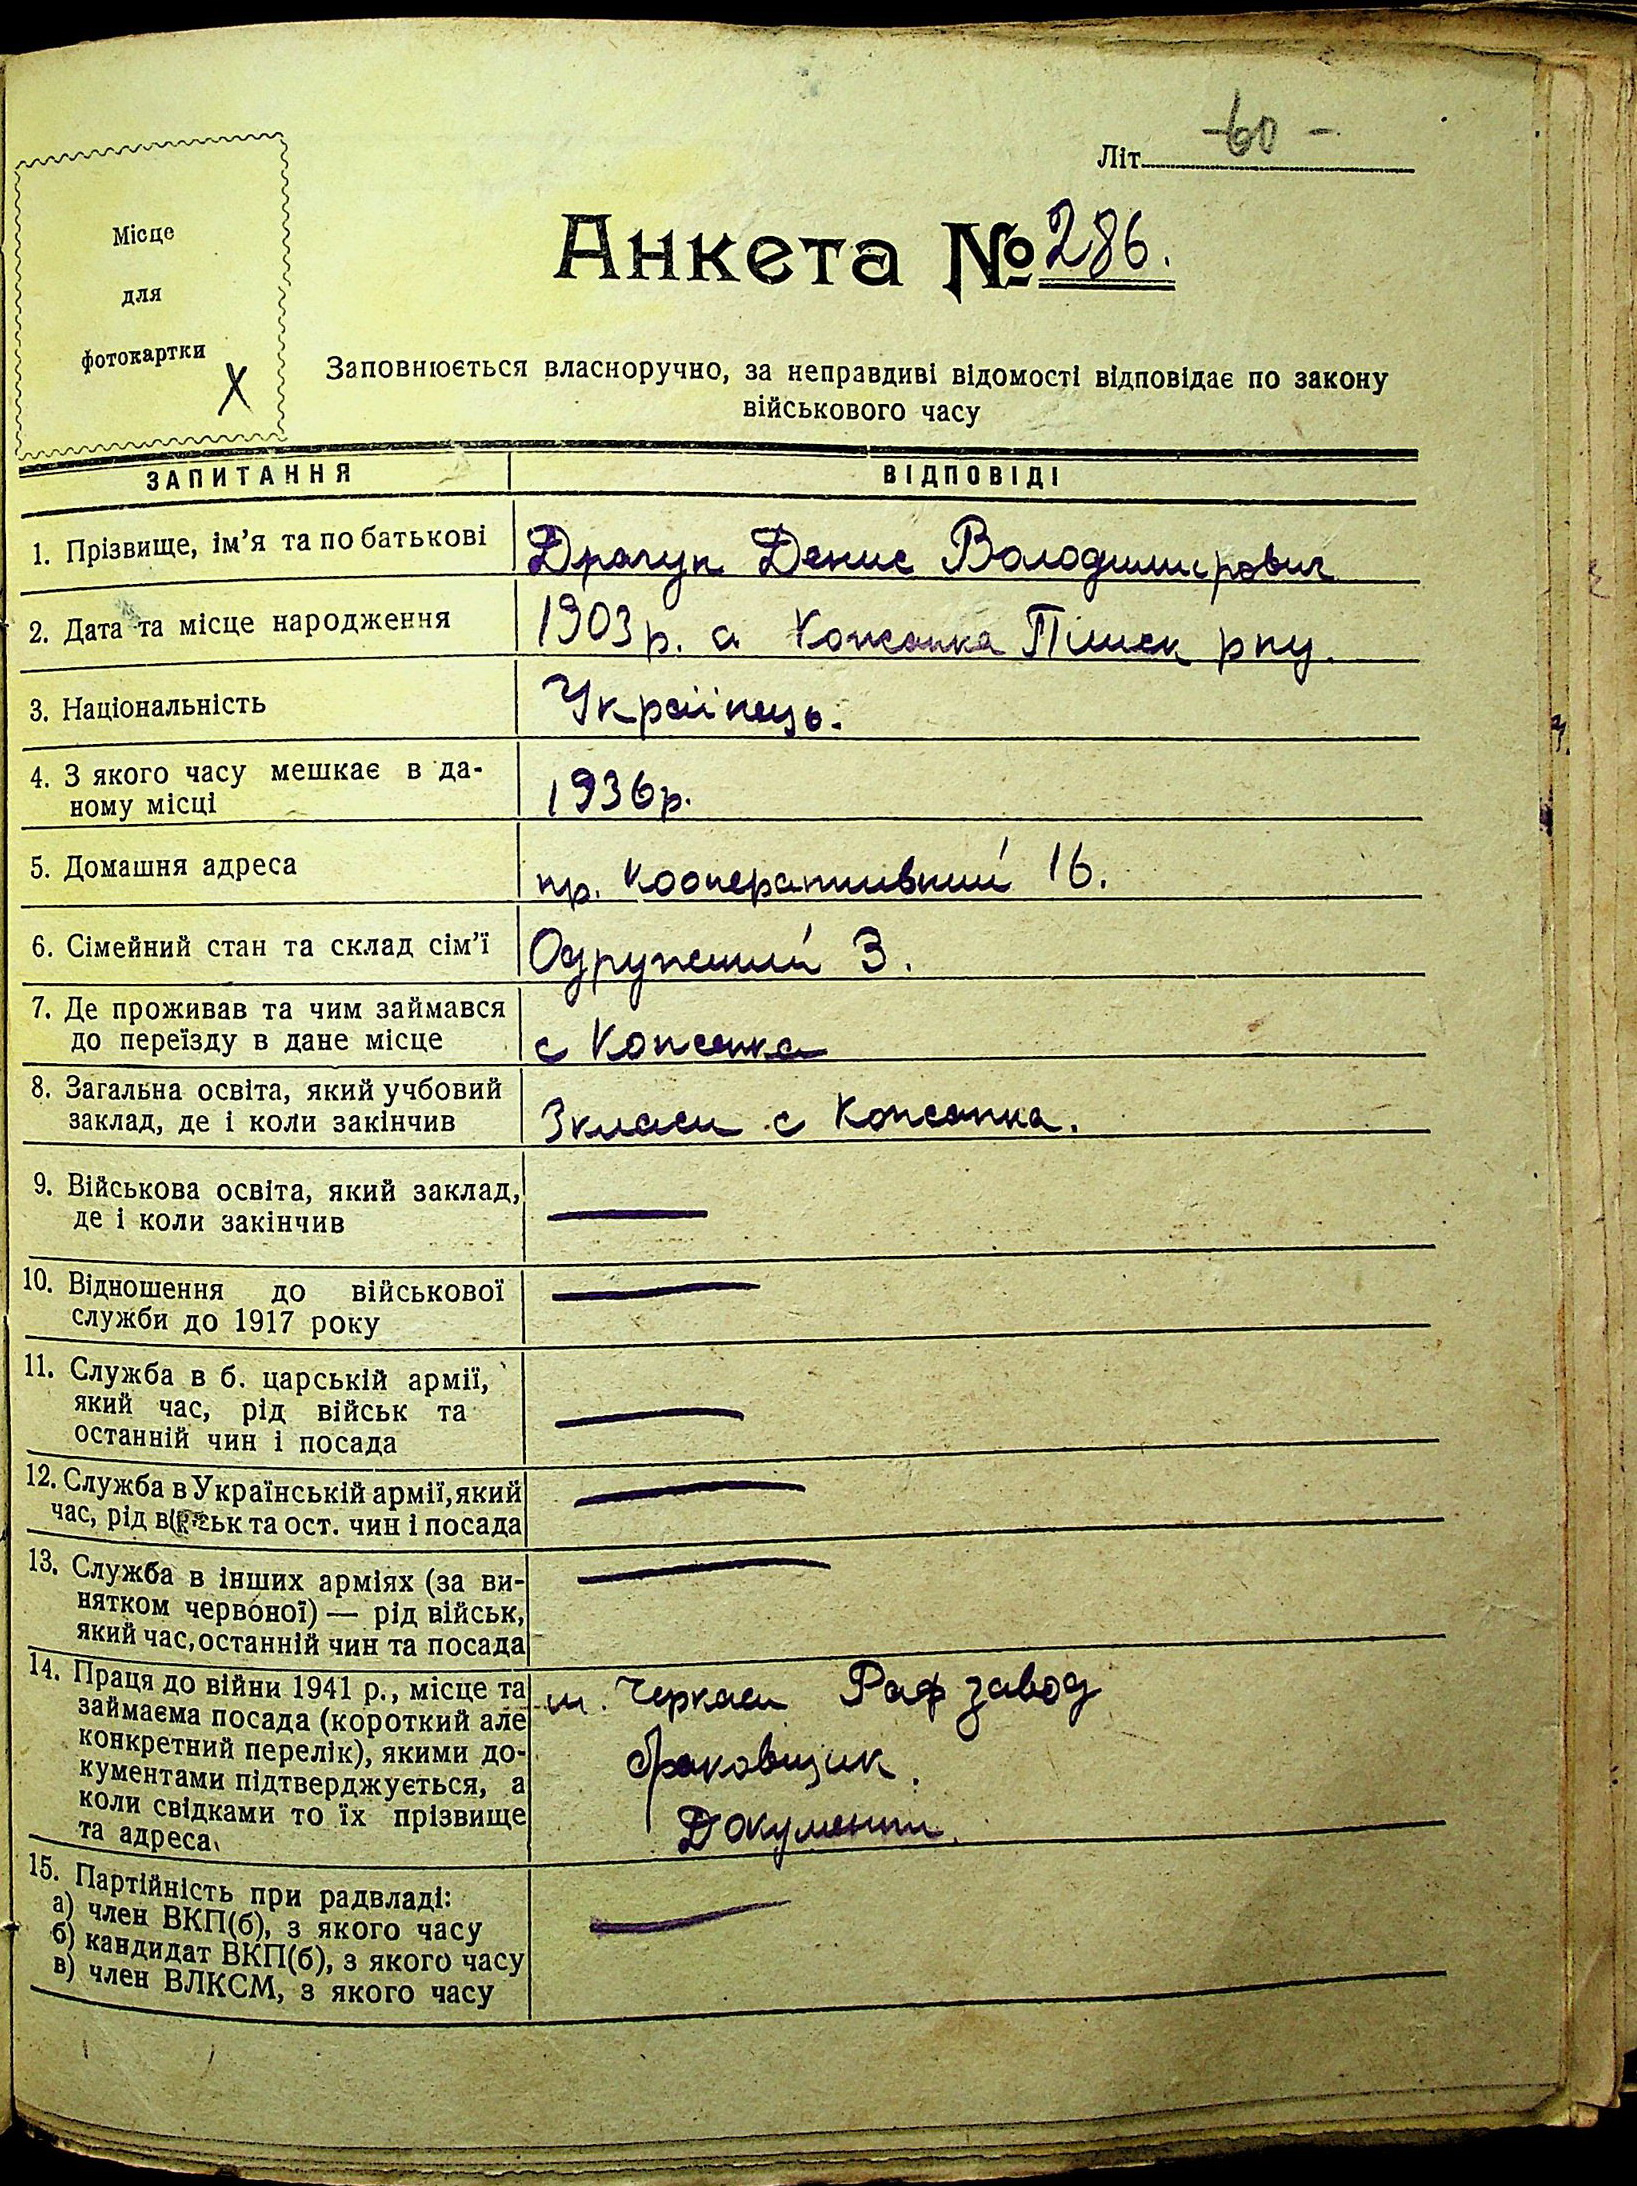 Літ. -60-
Місце
для
фотокартки
X
Анкета № 286.
Заповнюється власноручно, за неправдиві відомості відповідає по закону
військового часу
ЗАПИТАННЯ ВІДПОВІДІ
1. Прізвище, ім'я та по батькові Драгук Денис Володимирович
2. Дата та місце народження 1903 р. с Копсонка
3. Національність Українець.
4. З якого часу мешкає в да-
ному місці 1936 р.
5. Домашня адреса пр. Кооперативний 16.
6. Сімейний стан та склад сім'ї Одружений 3.
7. Де проживав та чим займався
до переїзду в дане місце с
8. Загальна освіта, який учбовий
заклад, де і коли закінчив 3 класи с
9. Військова освіта, який заклад,
де і коли закінчив —
10. Відношення до військової
служби до 1917 року —
11. Служба в б. царській армії,
який час, рід військ та
останній чин і посада —
12. Служба в Українській армії, який —
час, рід військ та ост. чин і посада
13. Служба в інших арміях (за ви- —
нятком червоної) — рід військ,
який час, останній чин та посада
14. Праця до війни 1941 р., місце та м. Черкаси Раф завод
займаєма посада (короткий але
конкретний перелік), якими до- браковщик.
кументами підтверджується, а
коли свідками то їх прізвище Документи.
та адреса.
15. Партійність при радвладі:
а) член ВКП(б), з якого часу —
б) кандидат ВКП(б), з якого часу
в) член ВЛКСМ, з якого часу